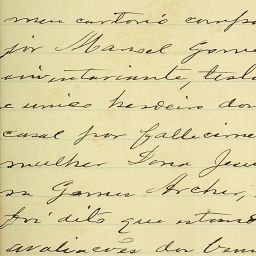 meu cartorio comp
por Manoel Gom
inventariante, test
e unico herdeiro do
casal por fallecime
mulher Dona Jesu
na Gomes Archer,
foi dito que estan
avaliações dos ben